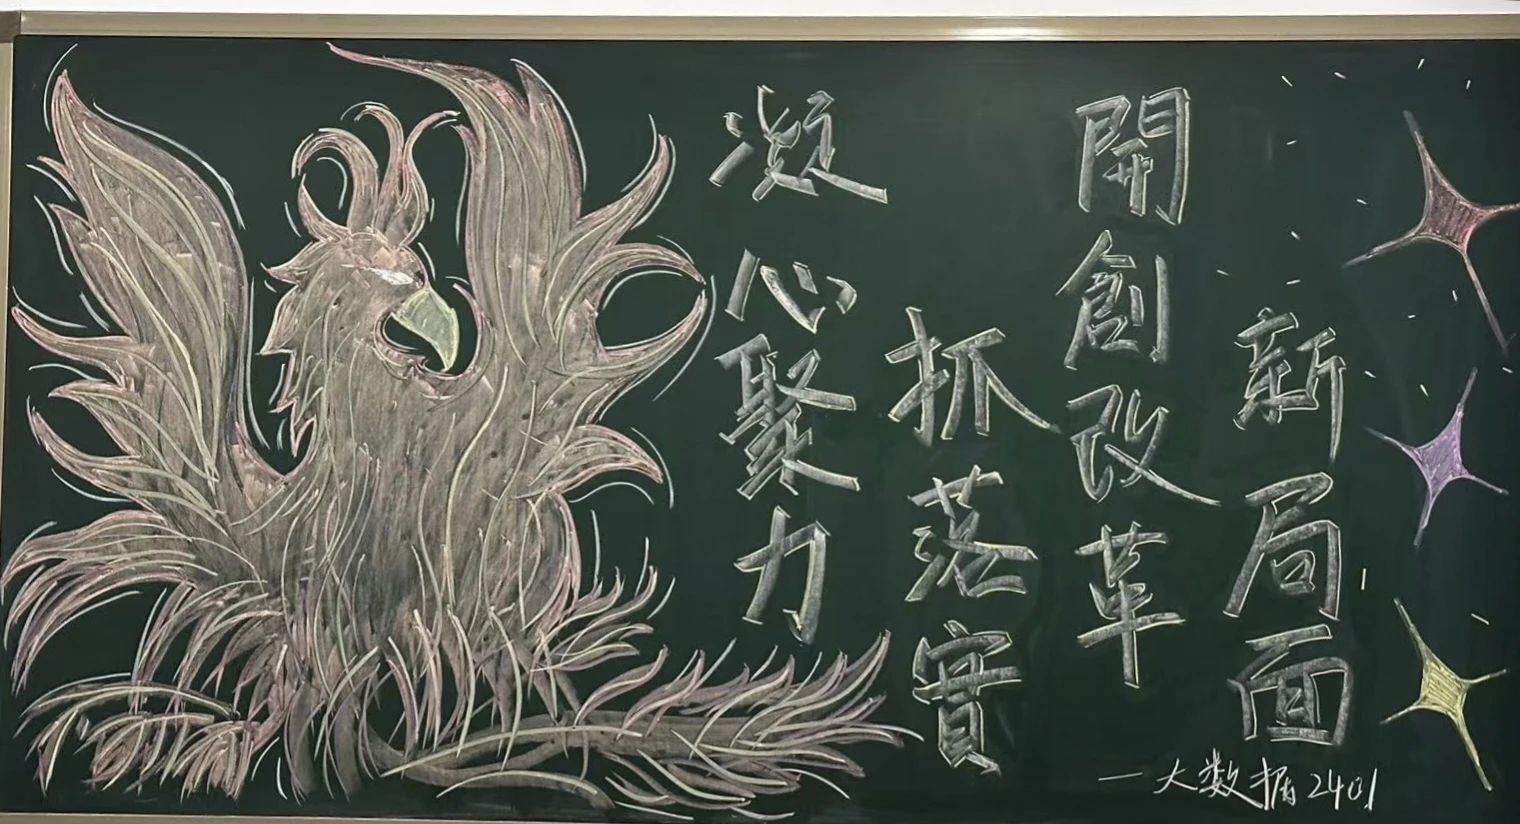 凝心聚力
抓落實
開創改革
新局面
—大数据2401